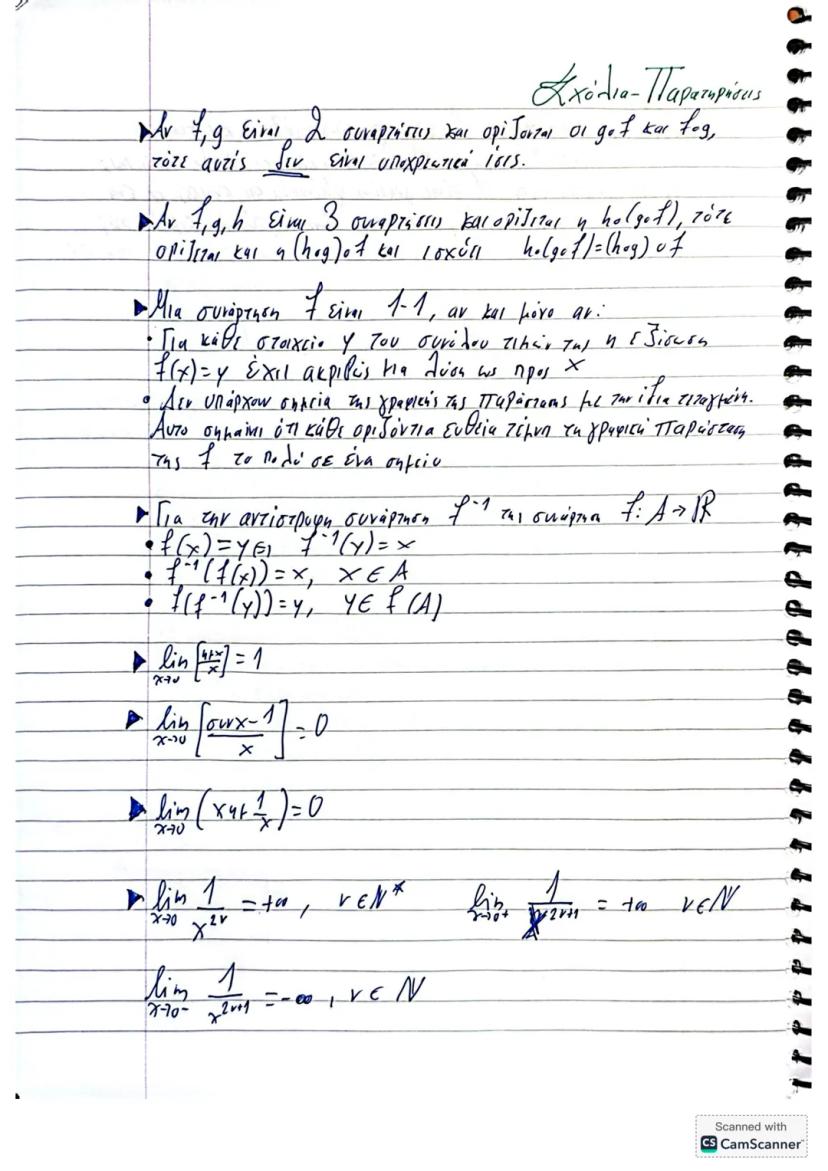 Σχόλια-Παρατηρήσεις
Αν f,g είναι 2 συναρτήσεις και ορίζονται οι gof και fog,
τότε αυτές δεν είναι υποχρεωτικά ίσες.
Αν f,g,h είναι 3 συναρτήσεις και ορίζεται η ho(gof), τότε
ορίζεται και η (hog)of και ισχύει ho(gof)=(hog)of
Μια συνάρτηση f είναι 1-1, αν και μόνο αν:
• Για κάθε στοιχείο y του συνόλου τιμών της η εξίσωση
f(x)=y έχει ακριβώς μια λύση ως προς x
• Δεν υπάρχουν σημεία της γραφικής της παράστασης με την ίδια τεταγμένη.
Αυτο σημαίνει ότι κάθε οριζόντια ευθεία τέμνη τη γραφική παράσταση
της f το πολύ σε ένα σημείο
Για την αντίστροφη συνάρτηση f⁻¹ της συνάρτηση f: A→ℝ
• f(x)=y⇔ f⁻¹(y)=x
• f⁻¹(f(x))=x, x∈A
• f(f⁻¹(y))=y, y∈f(A)
lim x→0 [ημx/x]=1
lim x→0 [συνx-1/x]=0
lim x→0 (xημ 1/x)=0
lim x→0 1/x^2ν =+∞, ν∈N* lim x→0+ 1/x^2ν+1 = +∞ ν∈N
lim x→0- 1/x^2ν+1 =-∞, ν∈N
Scanned with
CS CamScanner